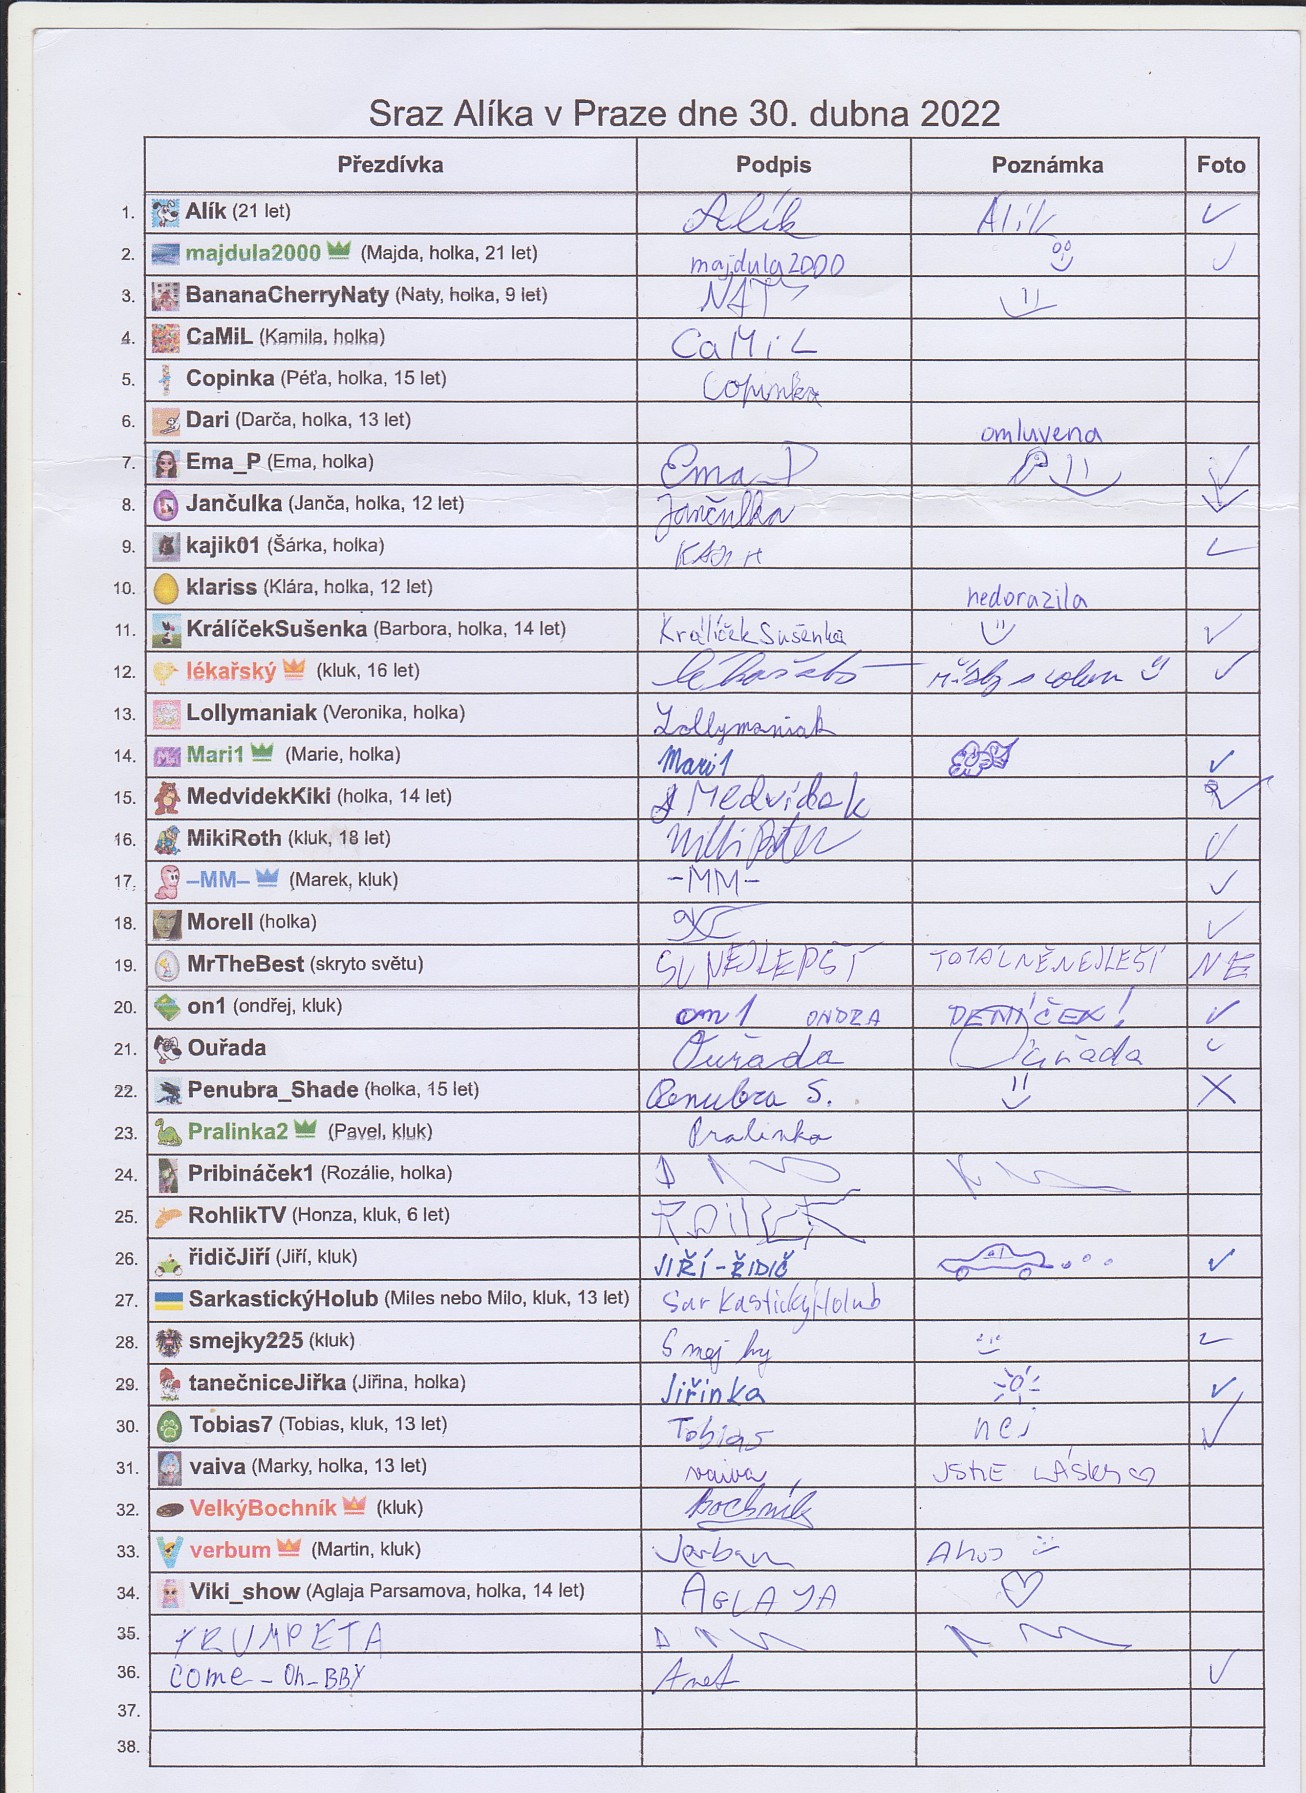 Sraz Alíka v Praze dne 30. dubna 2022
Přezdívka Podpis Poznámka Foto
1. Alík (21 let) Alík Alík
2. majdula2000 (Majda, holka, 21 let) majdula2000
3. BananaCherryNaty (Naty, holka, 9 let) NATY
4. CaMiL (Kamila, holka) CaMiL
5. Copinka (Péťa, holka, 15 let) Copinka
6. Dari (Darča, holka, 13 let) omluvena
7. Ema_P (Ema, holka) Ema_P
8. Jančulka (Janča, holka, 12 let) Jančulka
9. kajik01 (Šárka, holka)
10. klariss (Klára, holka, 12 let) nedorazila
11. KrálíčekSušenka (Barbora, holka, 14 let) KrálíčekSušenka
12. lékařský (kluk, 16 let)
13. Lollymaniak (Veronika, holka) Lollymaniak
14. Mari1 (Marie, holka) Mari1
15. MedvidekKiki (holka, 14 let) Medvídek
16. MikiRoth (kluk, 18 let)
17. –MM– (Marek, kluk) -MM-
18. Morell (holka)
19. MrTheBest (skryto světu) SU NEJLEPŠÍ TOTÁLNĚNEJLEŠÍ NE
20. on1 (ondřej, kluk) on1 ONDRA
21. Ouřada Ouřada Ouřada
22. Penubra_Shade (holka, 15 let) Penubra S.
23. Pralinka2 (Pavel, kluk) Pralinka
24. Pribináček1 (Rozálie, holka)
25. RohlikTV (Honza, kluk, 6 let)
26. řidičJiří (Jiří, kluk) JIŘÍ-ŘIDIČ
27. SarkastickýHolub (Miles nebo Milo, kluk, 13 let) SarkastickýHolub
28. smejky225 (kluk) Smejky
29. tanečniceJiřka (Jiřina, holka) Jiřinka
30. Tobias7 (Tobias, kluk, 13 let) Tobias nei
31. vaiva (Marky, holka, 13 let) vaiva JSME LÁSKY
32. VelkýBochník (kluk) Bochník
33. verbum (Martin, kluk) Verbum Ahoj
34. Viki_show (Aglaja Parsamova, holka, 14 let) AGLAYA
35. TRUMPETA
36. Come_Oh_BBY Anet
37.
38.